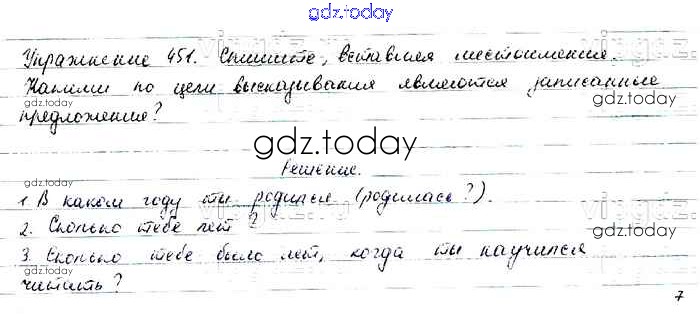 gdz.today
Упражнение 451. Спишите, вставляя местоимения.
Какими по цели высказывания являются записанные
gdz.today gdz.today
предложения?
gdz.today
Решение.
1. В каком году ты родился (родилась?).
gdz.today
2. Сколько тебе лет?
gdz.today
3. Сколько тебе было лет, когда ты научился
gdz.today gdz.today
читать?
7